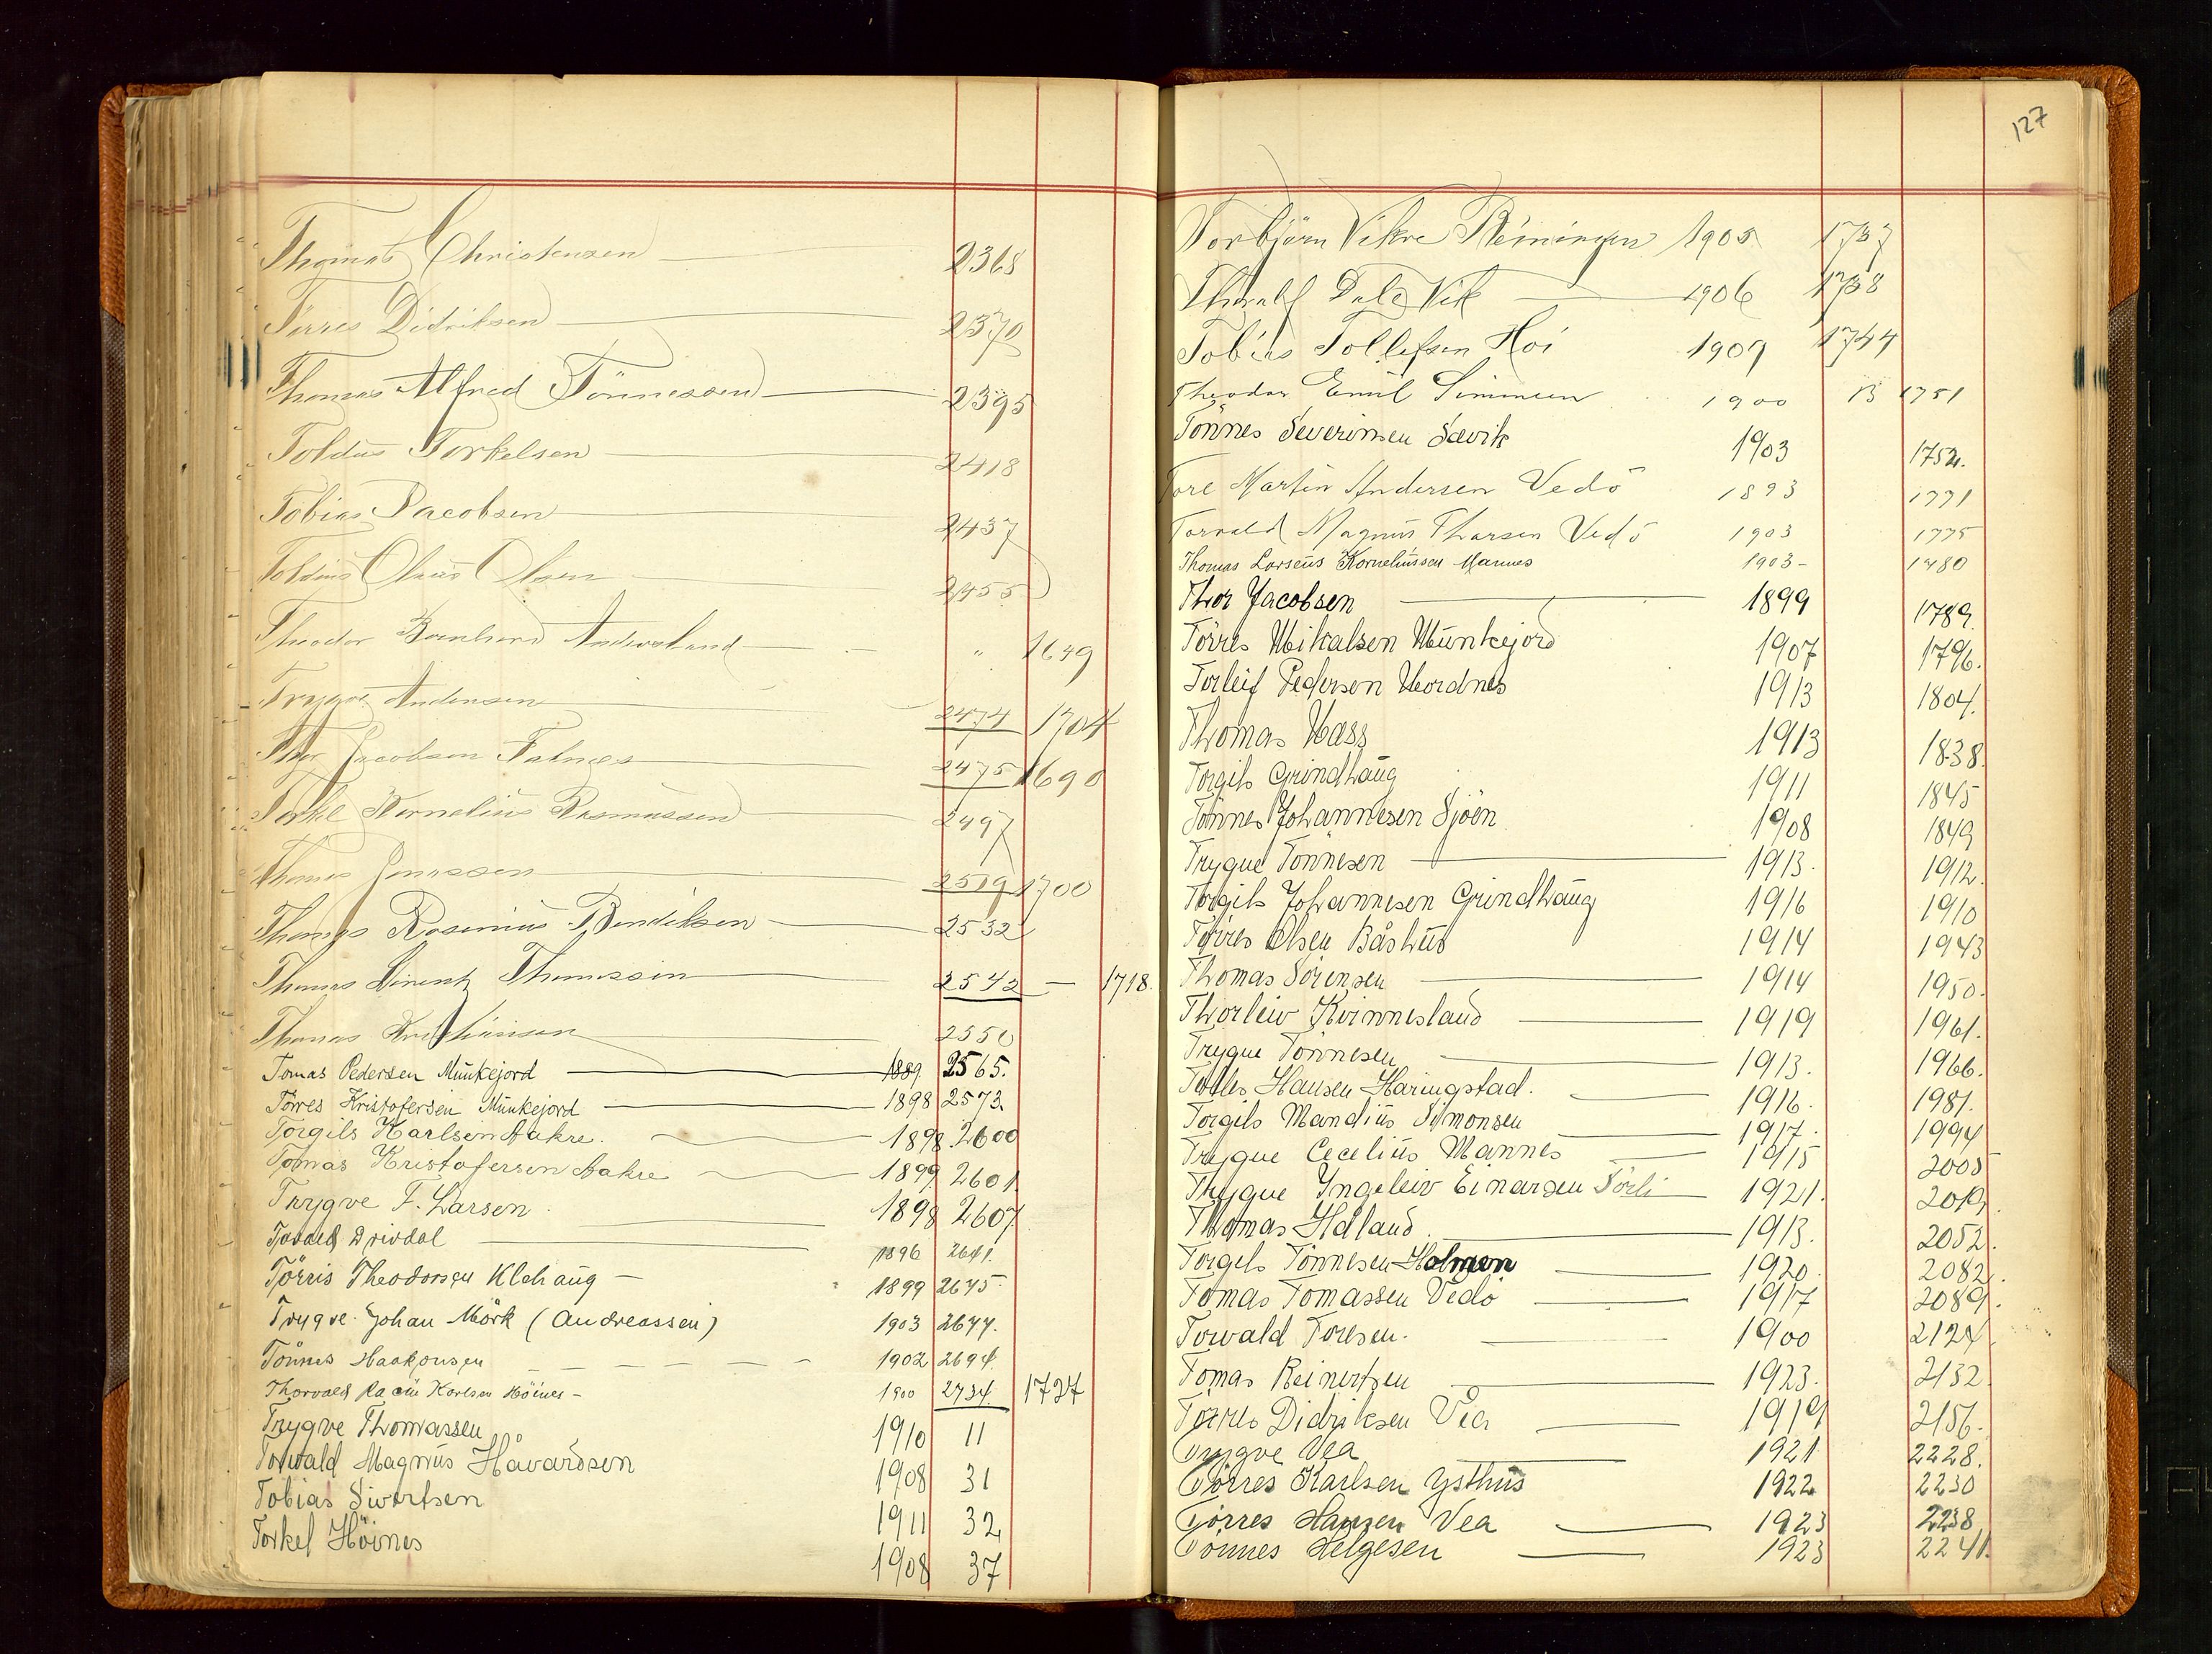 Thomas Christensen 2368
Törres Didriksen 2370
Thomas Alfred Tönnessen 2395
Toldus Torkelsen 2418
Tobias Jacobsen 2437
Toldius Olsen 2455
Theodor Bernhard " 1649
Trygve Andersen 2474 1704
Thor Jacobsen Falnes 2475 1690
Torkel Kornelius Rasmussen 2497
Thomas Jonassen 2519 1700
Thomas Rosinius Bendiksen 2532
Thomas Thomassen 2542 — 1718.
Thomas Kristiansen 2550
Tomas Pedersen Munkejord 1889 2565.
Törres Kristofersen Munkejord 1898 2573.
Torgils Karlsen Aakre. 1898 2600
Tomas Kristofersen Aakre 1899 2601
Trygve F. Larsen 1898 2607
Drivdal 1896 2641.
Törris Theodorsen Klehaug — 1899 2645.
Trygve Johan Mörk (Andreassen) 1903 2677.
Tönnes Haakonsen 1902 2694.
Thorvald Karlsen Höines — 1900 2734 1727
Trygve Thomassen 1910 11
Torvald Magnus Håvardsen 1908 31
Tobias Sivertsen 1911 32
Torkel Höines 1908 37
127
Torbjörn Vikre 1905 1737
Dale Vik 1906 1738
Tobias Tollefsen Hoi 1907 1744
Theodor Emil Simonsen 1900 B 1751
Tönnes Severinsen Sævik 1903 1752.
Tore Martin Andersen Vedö 1893 1771
Torvald Magnus Tharsen Vedö 1903 1775
Thomas Larseus Korneliussen Mannes 1903 — 1780
Thor Jacobsen 1899 1789.
Törres Mikalsen Munkejord 1907 1796.
Torleif Pedersen Nordnes 1913 1804.
Thomas Næss 1913 1838.
Torgils Grindhaug 1911 1845
Tönnes Johannesen Sjöen 1908 1849
Trygve Tönnesen 1913. 1912.
Torgils Johannesen Grindhaug 1916 1910
Törres Olsen Båshus 1914 1943
Thomas Sörensen 1914 1950.
Thorleiv Kvinnesland 1919 1961.
Trygve Tönnesen 1913. 1966.
Hansen Haringstad. 1916. 1981.
Torgils Mandius Simonsen 1917. 1994
Trygve Cecelius Mannes 1915 2005
Trygve Yngeleiv Einarsen Sörli 1921. 2019.
Thomas Helland 1913. 2052.
Torgils Tönnesen Holmen 1920. 2082.
Tomas Tomassen Vedö 1917 2089.
Torvald Toresen. 1900 2124
Tomas Reinertsen 1923. 2132.
Törres Didriksen Vea 1919 2156.
Trygve Vea 1921 2228.
Törres Karlsen Ysthus 1922 2230
Törres Hansen Vea 1923 2238
Tönnes Helgesen 1923 2241.